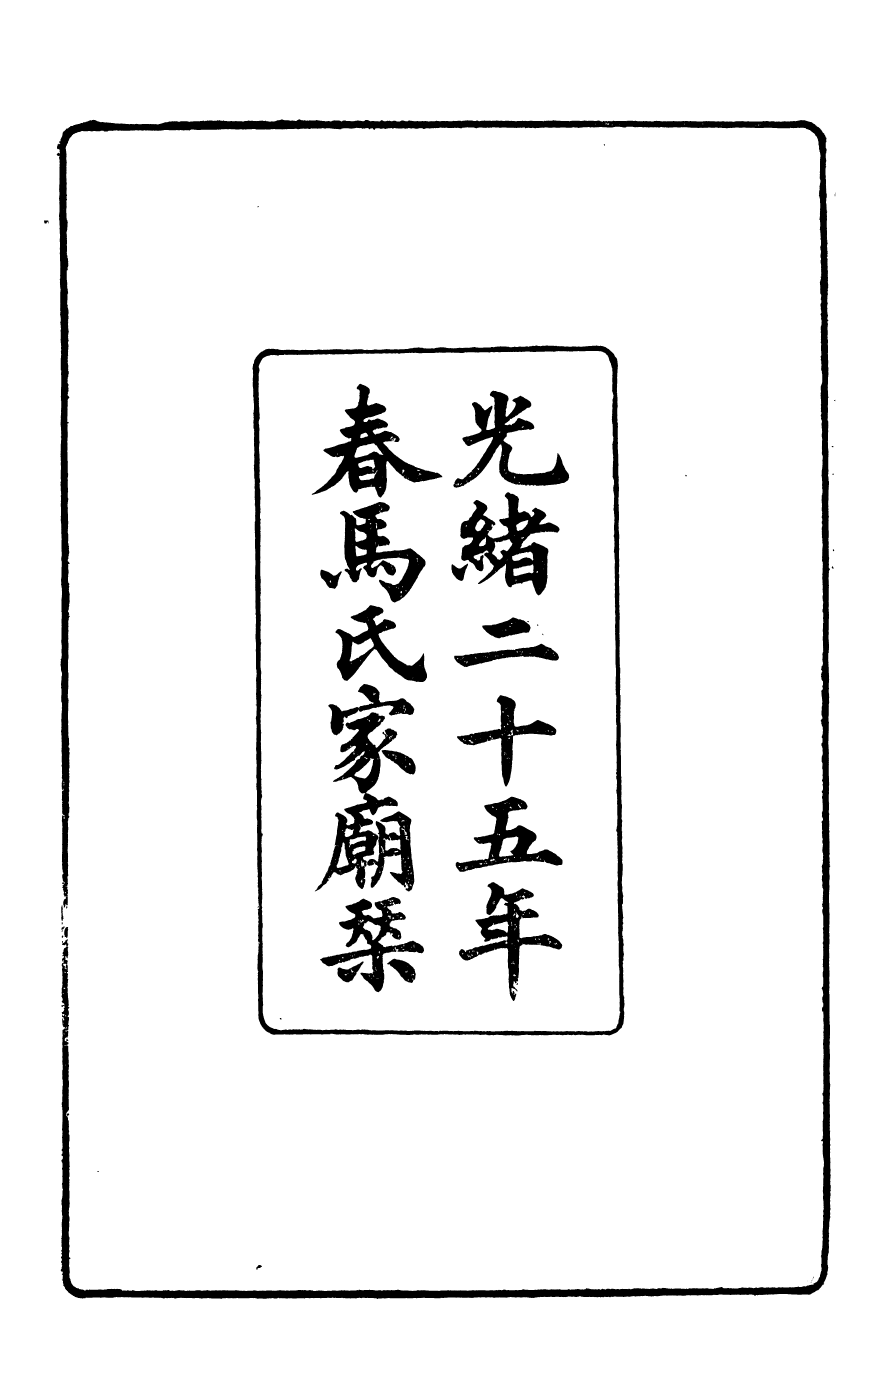 光緒二十五年
春馬氏家廟栞